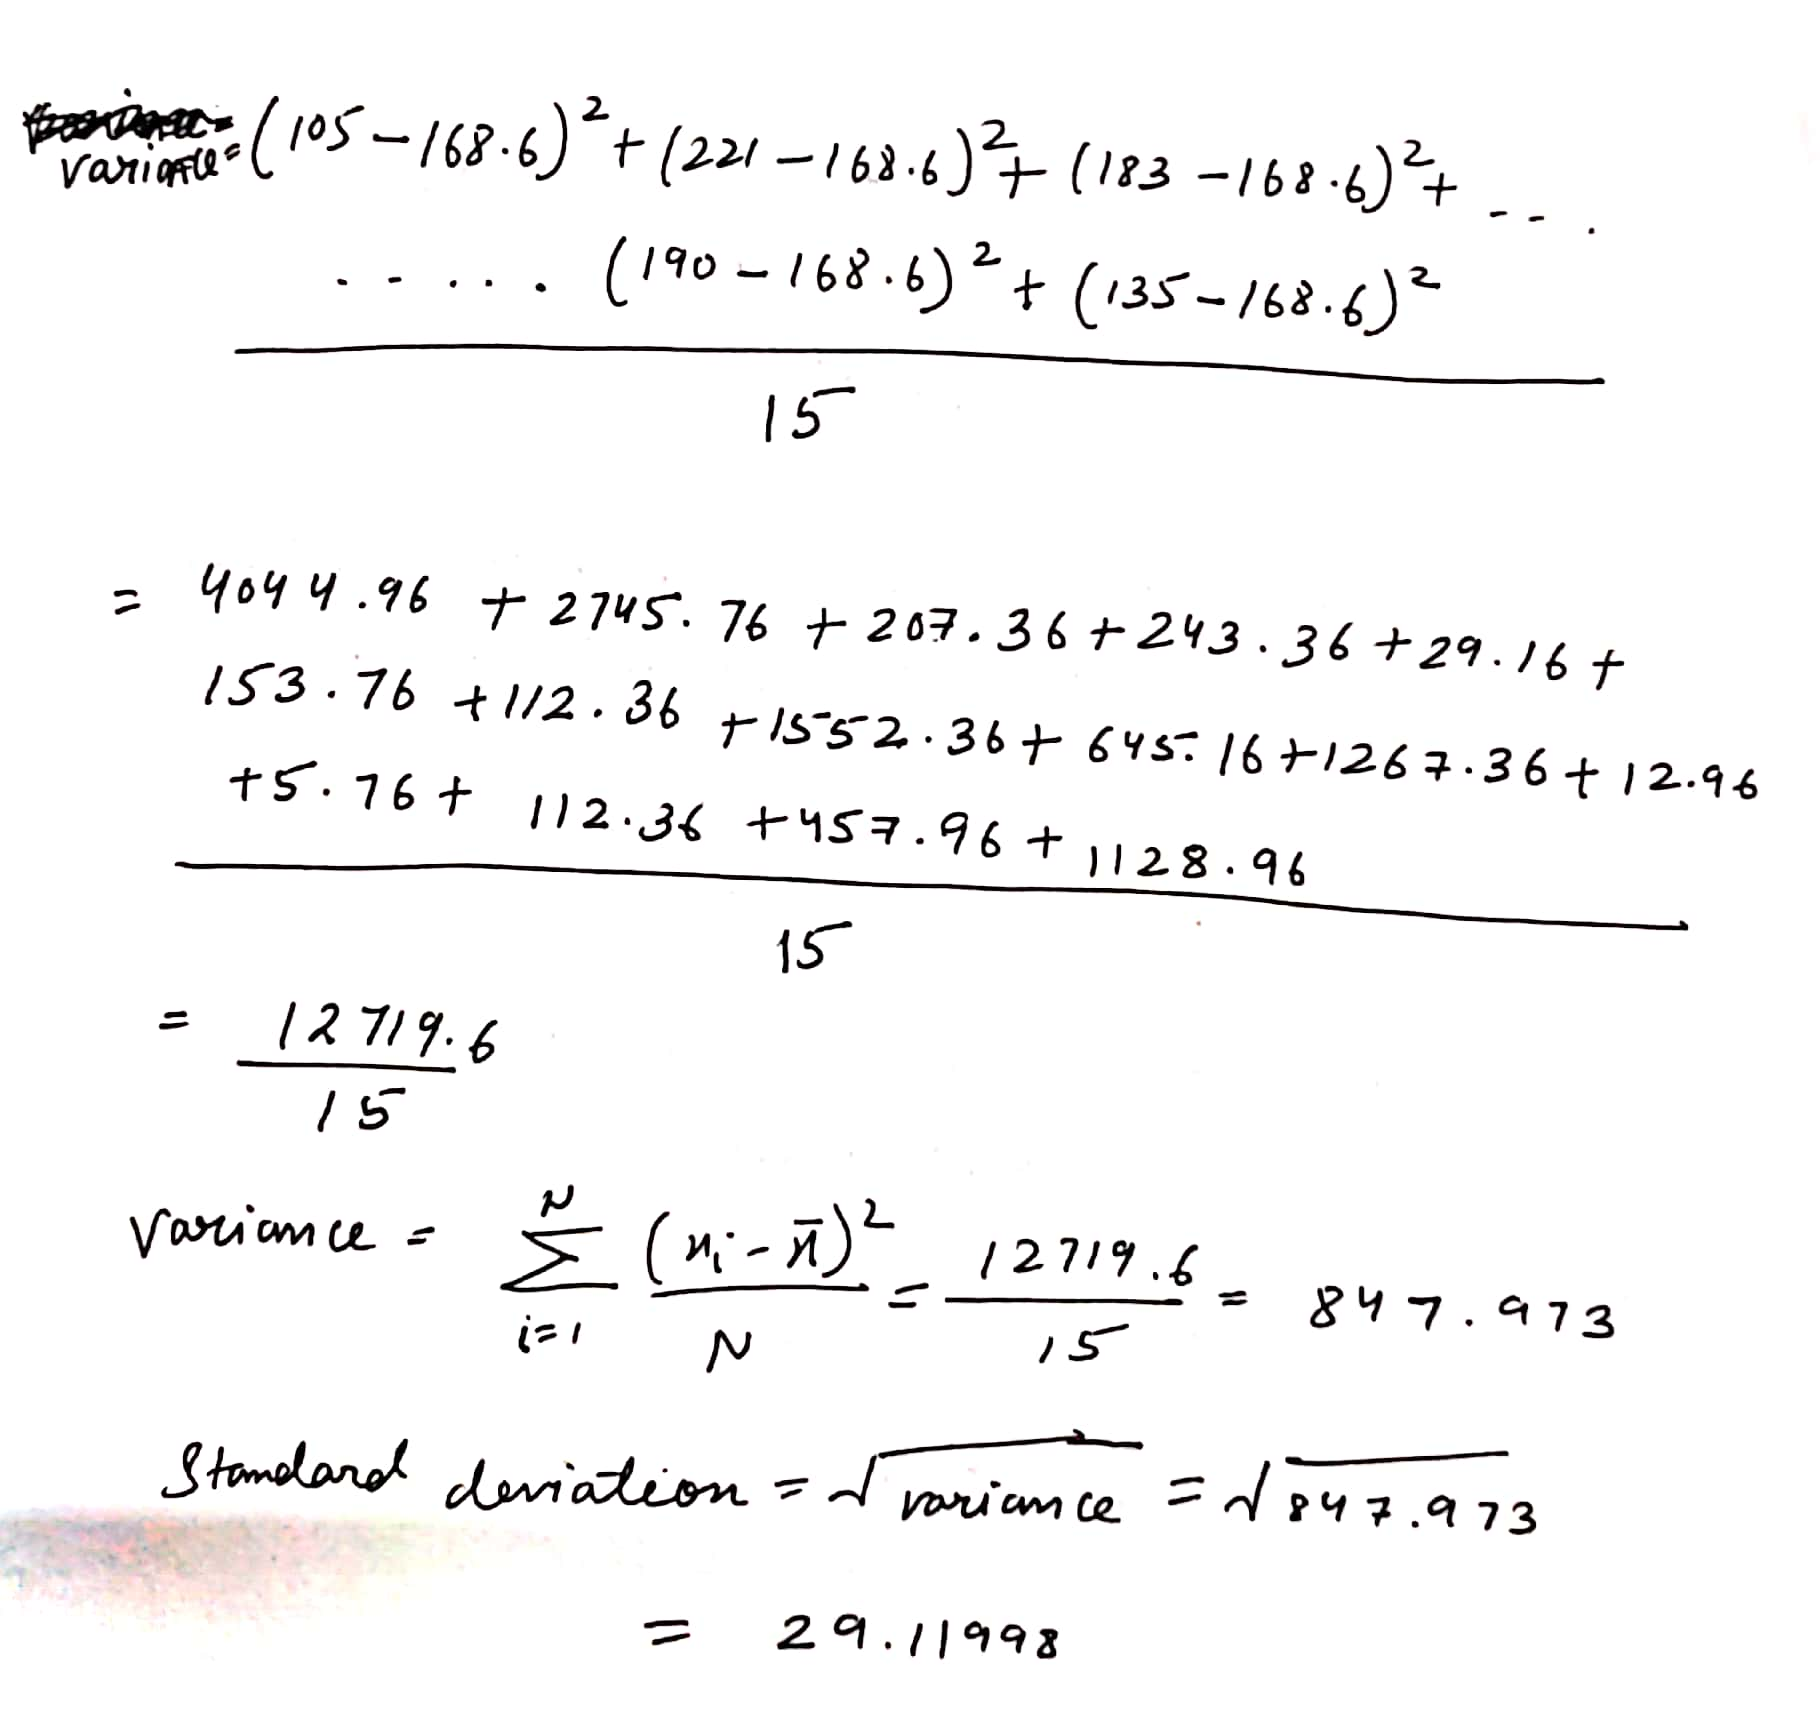 variance = (105 – 168.6)² + (221 – 168.6)² + (183 – 168.6)² + - - .
. - . . . (190 – 168.6)² + (135 – 168.6)²
15
= 4044.96 + 2745.76 + 207.36 + 243.36 + 29.16 +
153.76 + 112.36 + 1552.36 + 645.16 + 1267.36 + 12.96
+ 5.76 + 112.36 + 457.96 + 1128.96
15
= 12719.6
15
Variance = N Σ i=1 (xi - x̄)² / N = 12719.6 / 15 = 847.973
Standard deviation = √variance = √847.973
= 29.11998